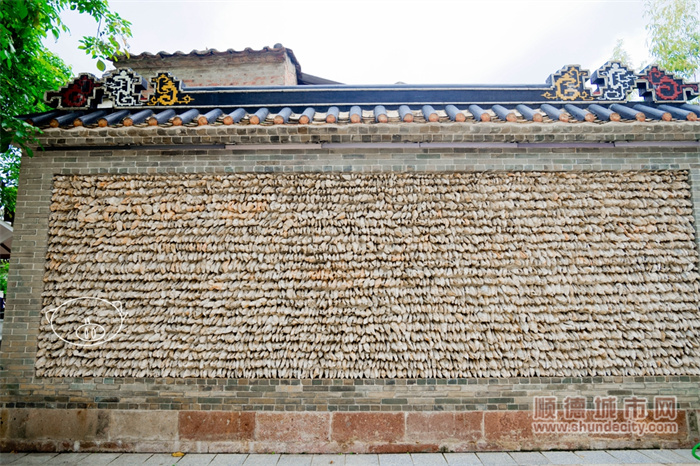 顺德城市网
www.shundecity.com